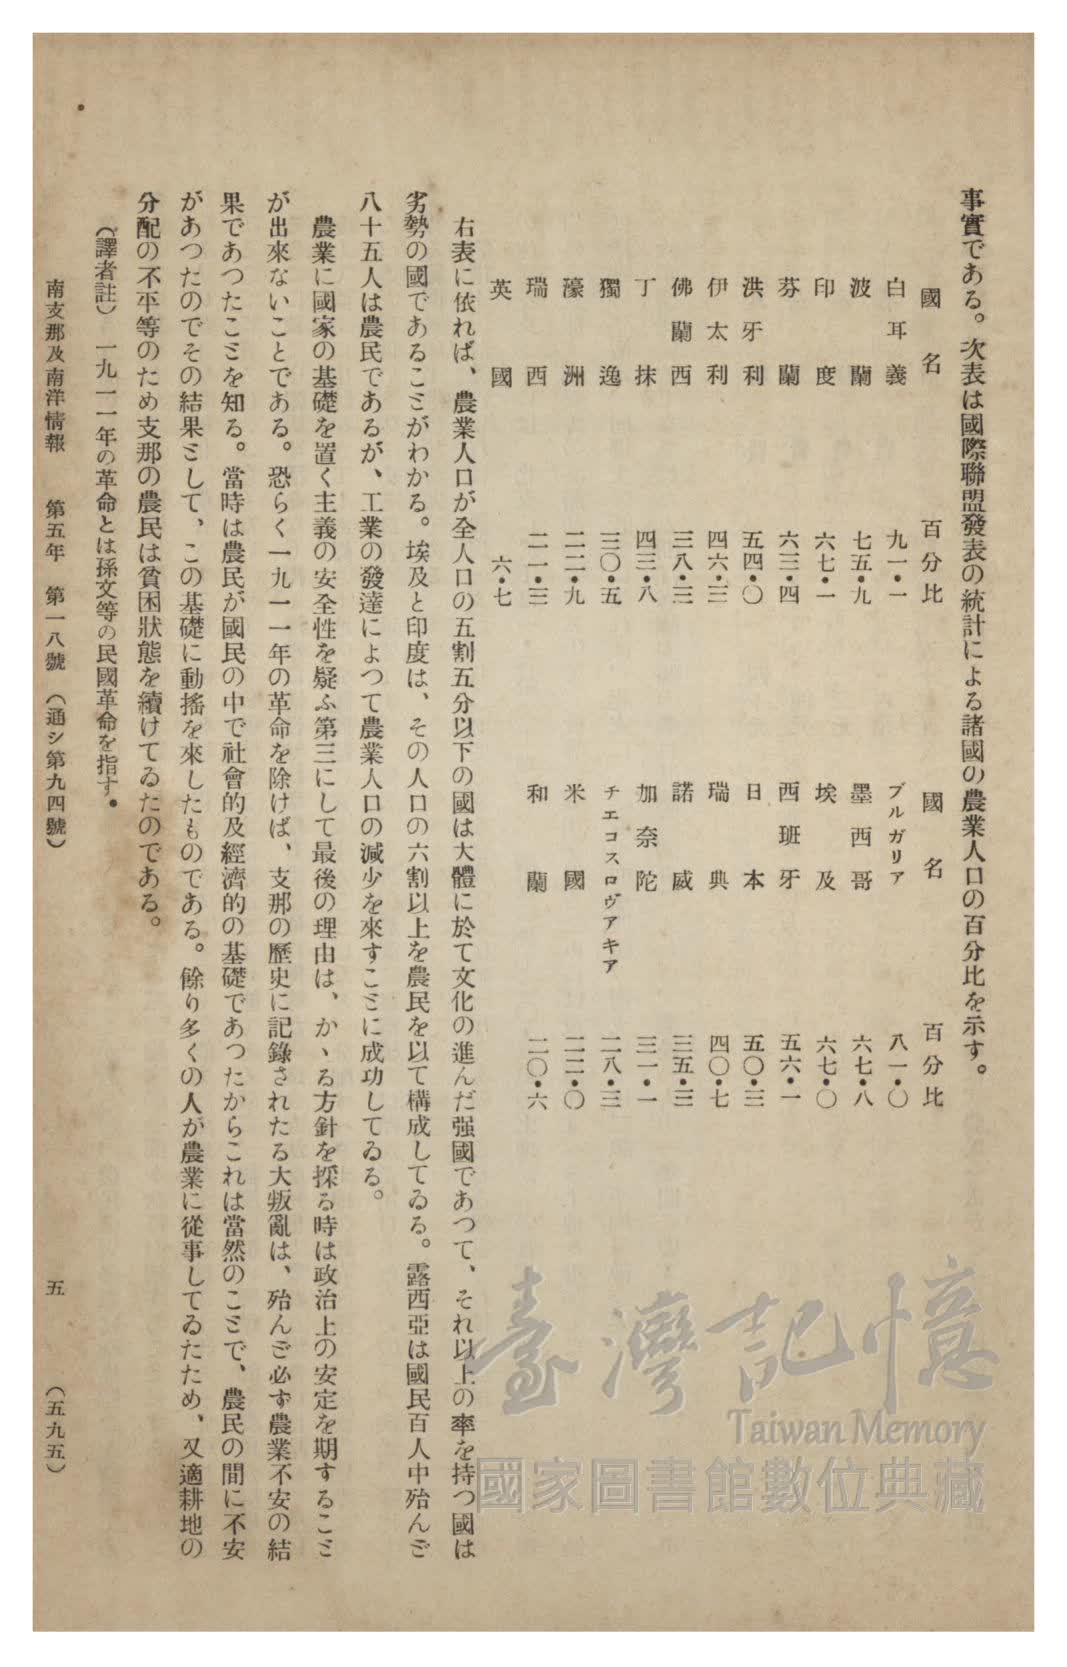 事實である。次表は國際聯盟發表の統計による諸國の農業人口の百分比を示す。
國名 百分比 國名 百分比
白耳義 九一・一 ブルガリア 八一・〇
波蘭 七五・九 墨西哥 六七・八
印度 六七・一 埃及 六七・〇
芬蘭 六三・四 西班牙 五六・一
洪牙利 五四・〇 日本 五〇・三
伊太利 四六・三 瑞典 四〇・七
佛蘭西 三八・三 諾威 三五・三
丁抹 四三・八 加奈陀 三一・一
獨逸 三〇・五 チエコスロヴアキア 二八・三
濠洲 二二・九 米國 二二・〇
瑞西 二一・三 和蘭 二〇・六
英國 六・七
右表に依れば、農業人口が全人口の五割五分以下の國は大體に於て文化の進んだ强國であつて、それ以上の率を持つ國は
劣勢の國であることがわかる。埃及と印度は、その人口の六割以上を農民を以て構成してゐる。露西亞は國民百人中殆んど
八十五人は農民であるが、工業の發達によつて農業人口の減少を來すことに成功してゐる。
農業に國家の基礎を置く主義の安全性を疑ふ第三にして最後の理由は、かゝる方針を採る時は政治上の安定を期すること
が出來ないことである。恐らく一九一一年の革命を除けば、支那の歷史に記錄されたる大叛亂は、殆んど必ず農業不安の結
果であつたことを知る。當時は農民が國民の中で社會的及經濟的の基礎であつたからこれは當然のことで、農民の間に不安
があつたのでその結果として、この基礎に動搖を來したものである。餘り多くの人が農業に從事してゐたため、又適耕地の
分配の不平等のため支那の農民は貧困狀態を續けてゐたのである。
（譯者註） 一九一一年の革命とは孫文等の民國革命を指す。
南支那及南洋情報 第五年 第一八號 （通シ第九四號） 五 （五九五）
臺灣記憶
Taiwan Memory
國家圖書館數位典藏